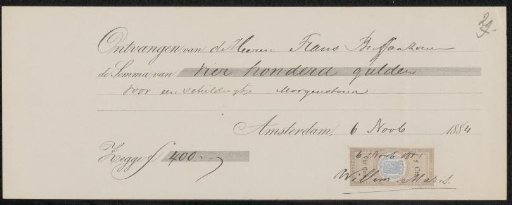 29
Ontvangen van de Heeren Frans Buffa & Zonen
de Somma van vier honderd gulden
voor een schilderijtje Morgenstond
Amsterdam, 6 Novb 1884
Zegge f 400.-
6 Novb 1884
Willem Maris